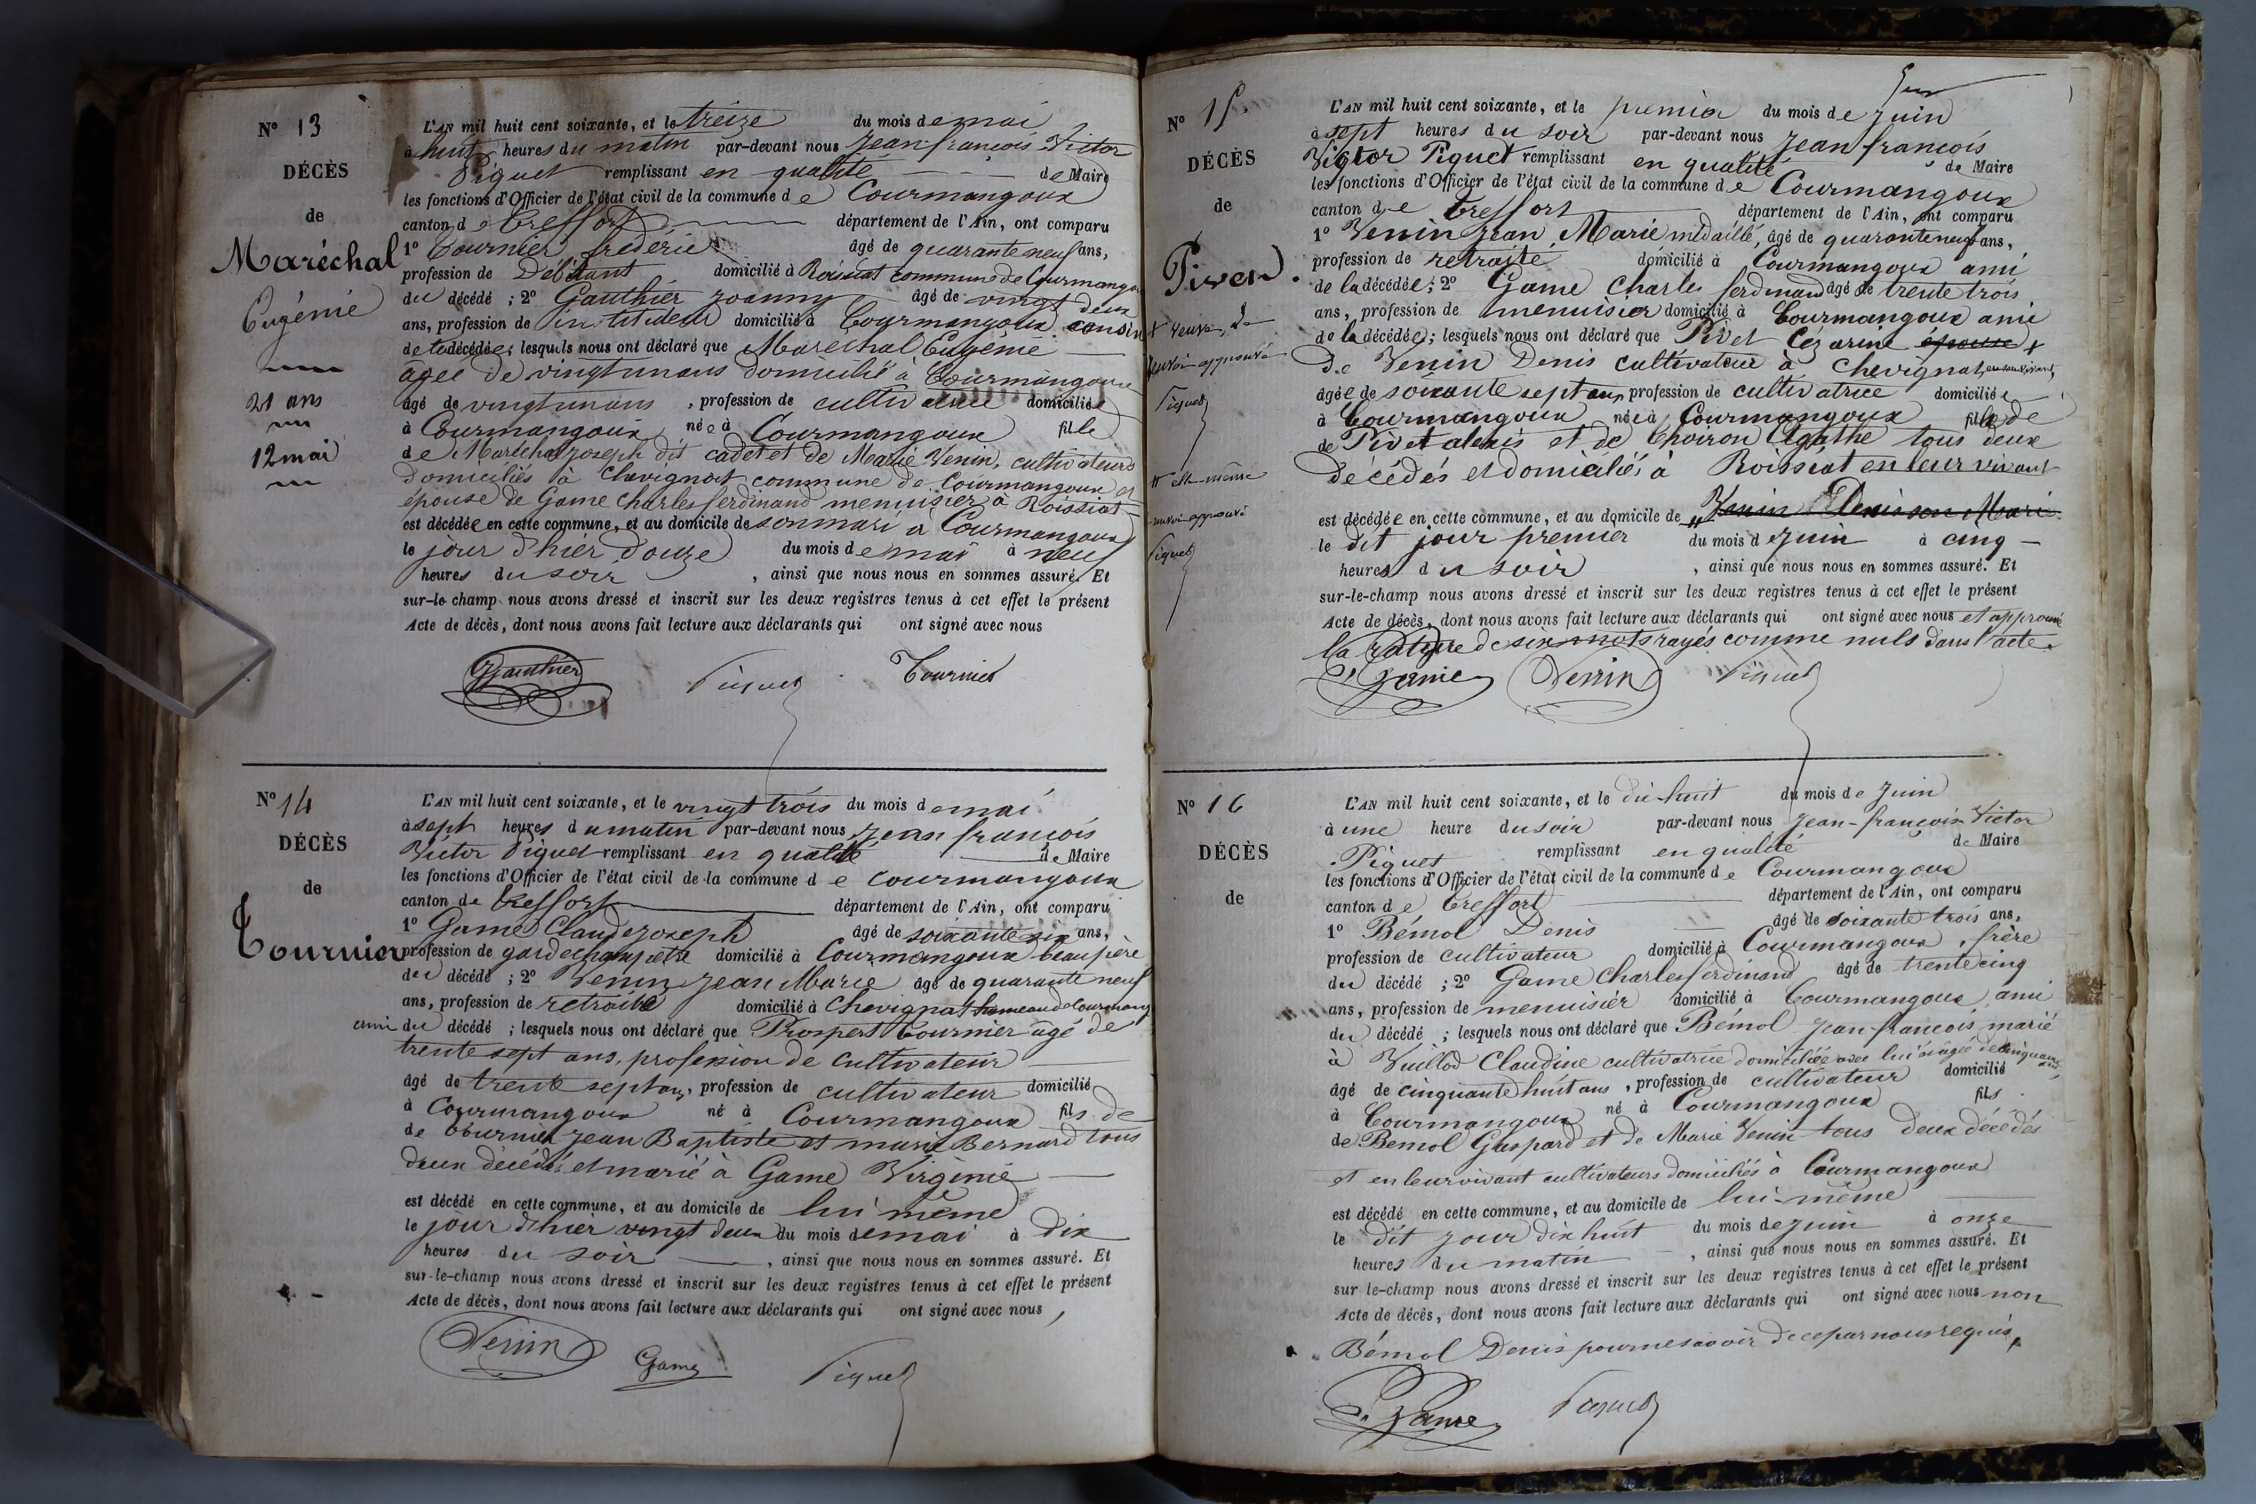 N° 13
DÉCÈS
de
Maréchal
Eugénie
21 ans
12 mai
L'AN mil huit cent soixante, et le treize du mois de mai
à huit heures du matin par-devant nous Jean françois Victor
Piquet remplissant en qualité de Maire
les fonctions d'Officier de l'état civil de la commune de Courmangoux
canton de Treffort département de l'Ain, ont comparu
1° Tournier frederic âgé de quarante neuf ans,
profession de Débitant domicilié à Roissiat commune de Courmangoux
du décédé ; 2° Gauthier Joanny âgé de vingt deux
ans, profession de instituteur domicilié à Courmangoux cousin
de la décédée; lesquels nous ont déclaré que Maréchal Eugénie
agée de vingt un ans domicilié à Courmangoux
âgé de vingt un ans , profession de cultivatrice domiciliée
à Courmangoux née à Courmangoux fille
de Maréchal Joseph dit cadet et de Marie Venin, cultivateurs
domiciliés à Chevignat commune de Courmangoux et
épouse de Game Charles ferdinand menuisier à Roissiat
est décédée en cette commune, et au domicile de son mari à Courmangoux
le jour d'hier douze du mois de mai à neuf
heures du soir , ainsi que nous nous en sommes assuré. Et
sur-le-champ nous avons dressé et inscrit sur les deux registres tenus à cet effet le présent
Acte de décès, dont nous avons fait lecture aux déclarants qui ont signé avec nous
Gauthier Piquet Tournier
N° 14
DÉCÈS
de
Tournier
L'AN mil huit cent soixante, et le vingt trois du mois de mai
à sept heures du matin par-devant nous Jean françois
Victor Piquet remplissant en qualité de Maire
les fonctions d'Officier de l'état civil de la commune de Courmangoux
canton de Treffort département de l'Ain, ont comparu
1° Game Claude Joseph âgé de soixante six ans,
profession de garde champêtre domicilié à Courmangoux beau père
du décédé ; 2° Venin Jean Marie âgé de quarante neuf
ans, profession de retraité domicilié à Chevignat hameau de Courmang
ami du décédé ; lesquels nous ont déclaré que Prospert Tournier âgé de
trente sept ans, profession de cultivateur
âgé de trente sept ans, profession de cultivateur domicilié
à Courmangoux né à Courmangoux fils de
de Tournier Jean Baptiste et marie Bernard tous
deux décédés et marié à Game Virginie
est décédé en cette commune, et au domicile de lui même
le jour d'hier vingt deux du mois de mai à dix
heures du soir , ainsi que nous nous en sommes assuré. Et
sur-le-champ nous avons dressé et inscrit sur les deux registres tenus à cet effet le présent
Acte de décès, dont nous avons fait lecture aux déclarants qui ont signé avec nous,
Venin Game Piquet
N° 15
DÉCÈS
de
Pivet
+ veuve de
renvoi approuvé
Piquet
# elle-même
renvoi approuvé
Piquet
L'AN mil huit cent soixante, et le premier du mois de Juin
à sept heures du soir par-devant nous Jean françois
Victor Piquet remplissant en qualité de Maire
les fonctions d'Officier de l'état civil de la commune de Courmangoux
canton de Treffort département de l'Ain, ont comparu
1° Venin Jean Marie médaillé, âgé de quarante neuf ans,
profession de retraité domicilié à Courmangoux ami
de la décédée; 2° Game Charles ferdinand âgé de trente trois
ans, profession de menuisier domicilié à Courmangoux ami
de la décédée; lesquels nous ont déclaré que Pivet Cézarine épouse +
de Venin Denis cultivateur à Chevignat en son vivant,
âgée de soixante sept ans, profession de cultivatrice domiciliée
à Courmangoux née à Courmangoux fille de
de Pivet alexis et de Choiron Agathe tous deux
décédés et domiciliés à Roissiat en leur vivant
est décédée en cette commune, et au domicile de # Venin Denis son Mari
le dit jour premier du mois de Juin à cinq
heures du soir , ainsi que nous nous en sommes assuré. Et
sur-le-champ nous avons dressé et inscrit sur les deux registres tenus à cet effet le présent
Acte de décès, dont nous avons fait lecture aux déclarants qui ont signé avec nous et approuvé
la rature de six mots rayés comme nuls dans l'acte.
Game Venin Piquet
N° 16
DÉCÈS
de
L'AN mil huit cent soixante, et le dix-huit du mois de Juin
à une heure du soir par-devant nous Jean-françois Victor
Piquet remplissant en qualité de Maire
les fonctions d'Officier de l'état civil de la commune de Courmangoux
canton de Treffort département de l'Ain, ont comparu
1° Bémol Denis âgé de soixante trois ans,
profession de cultivateur domicilié à Courmangoux, frère
du décédé ; 2° Game Charles ferdinand âgé de trente cinq
ans, profession de menuisier domicilié à Courmangoux, ami
du décédé ; lesquels nous ont déclaré que Bémol Jean-françois marié
à Vuillod Claudine cultivatrice domiciliée avec lui âgée de cinquante
âgé de cinquante huit ans, profession de cultivateur domicilié
à Courmangoux né à Courmangoux fils
de Bemol Gaspard et de Marie Venin tous deux décédés
et en leur vivant cultivateurs domiciliés à Courmangoux
est décédé en cette commune, et au domicile de lui-même
le dit jour dix huit du mois de Juin à onze
heures du matin , ainsi que nous nous en sommes assuré. Et
sur-le-champ nous avons dressé et inscrit sur les deux registres tenus à cet effet le présent
Acte de décès, dont nous avons fait lecture aux déclarants qui ont signé avec nous non
Bémol Denis pour ne savoir de ce par nous requis
Game Piquet